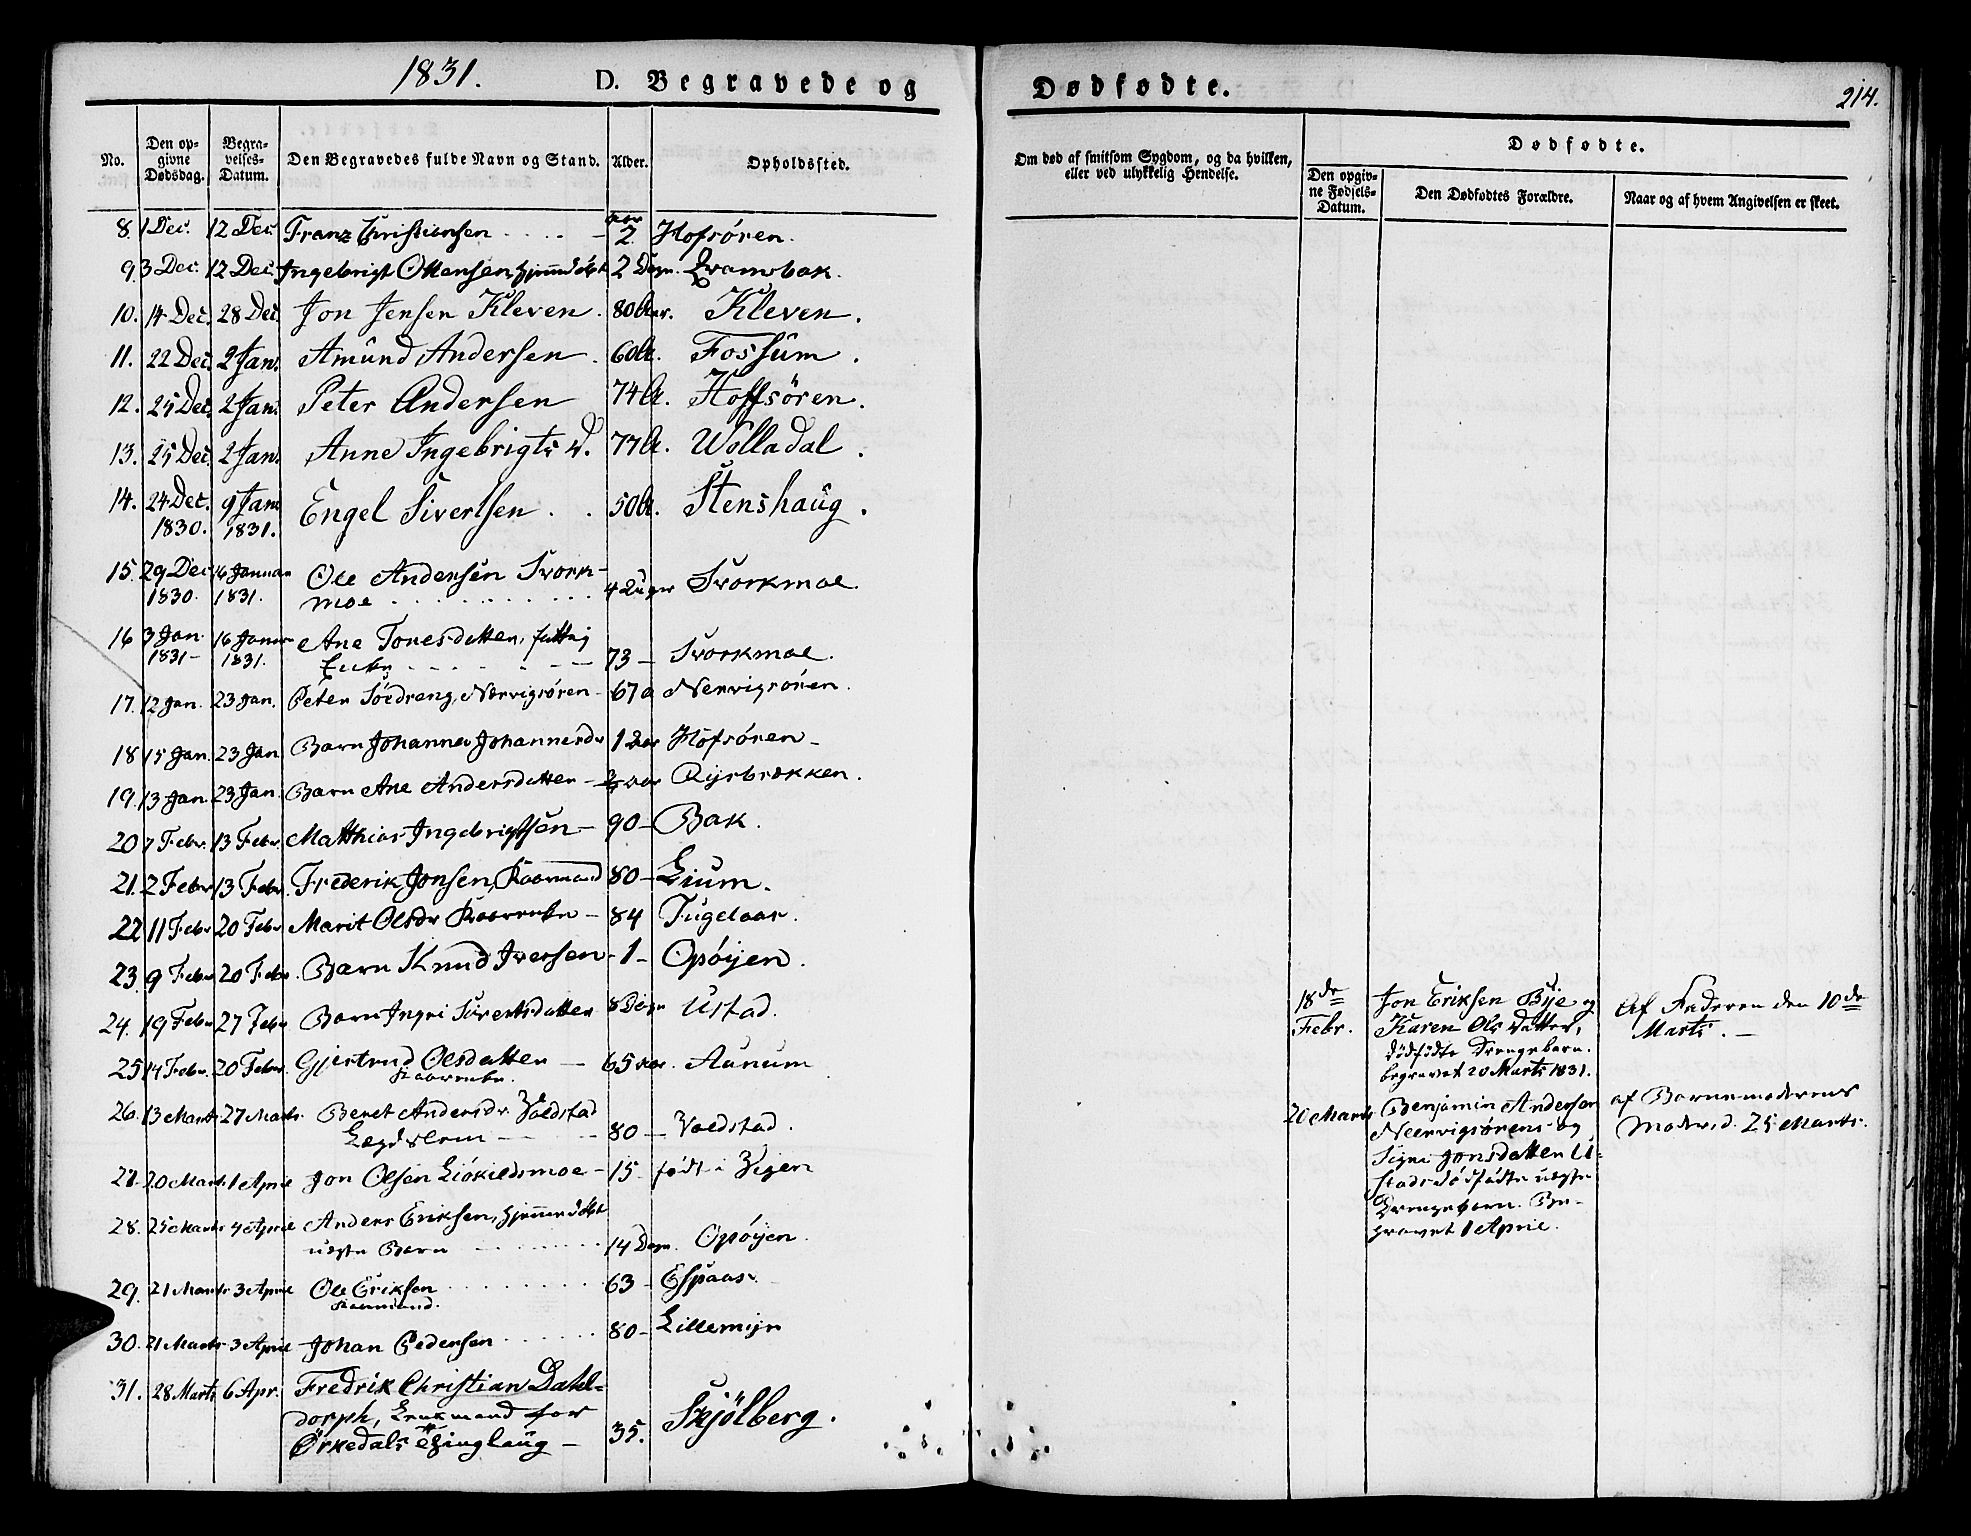 1831.
D. Begravede og
Dødfødte.
214.
No.
Den opgivne Dødsdag.
Begravelses-Datum.
Den Begravedes fulde Navn og Stand.
Alder.
Opholdssted.
Om død af smitsom Sygdom, og da hvilken, eller ved ulykkelig Hendelse.
Dødfødte.
Den opgivne Fødsels-Datum.
Den Dødfødtes Forældre.
Naar og af hvem Angivelsen er skeet.
8. 1 Dec. 12 Dec Franz Christiansen aar 2. Hofsören.
9. 3 Dec. 12 Dec. Ingebrigt Ottensen, hjemmedöbt 2 Dage.
10. 14 Dec. 28 Dec. Jon Jensen Kleven. 80 Aar. Kleven.
11. 22 Dec. 2 Jan. Amund Andersen. 60 A. Fossum.
12. 25 Dec. 2 Jan. Peter Andersen 74 A. Hoffsören.
13. 25 Dec. 2 Jan. Anne Ingebrigts D. 77 A. Wolladal.
14. 24 Dec. 1830. 9 Jan 1831. Engel Sivertsen. 50 A. Stenshaug.
15. 29 Dec 1830. 16 Januar 1831. Ole Andersen Svorkmoe 4 Uger Svorkmoe.
16 3 Jan. 1831 16 Januar 1831. Ane Tonesdatter, fattig Enke 73 Svorkmoe.
17. 12 Jan. 23 Jan. Peter Sördreng, Nærvigsören 67 a Nervigsören.
18 15 Jan. 23 Jan Barn Johanna Johannesdr 1 Aar Hofsören
19. 13 Jan. 23 Jan. Barn Ane Andersdatter aar Rysbrækken.
20 7 Febr. 13 Febr. Matthias Ingebrigtsen 90 Bak.
21. 2 Febr 13 Febr. Frederik Jonsen, Kaarmand 80 Lium.
22 11 Febr 20 Febr Marit Olsdr Kaarenke 84 Fugelaas.
23. 9 Febr 20 Febr. Barn Knud Iversen 1 Opöyen.
24. 19 Febr 27 Febr Barn Ingri Sivertsdatter 8 Dage Ustad.
25 14 Febr. 20 Febr. Gjertrud Olsdatter Kaarenke. 65 aar. Aunum
26. 13 Marts 27 Marts Beret Andersdr Voldstad Lægdslem 80 Voldstad.
27. 20 Marts 1 April Jon Olsen 15 födt i Vigen
28. 25 Marts 4 April Anders Eriksen, hjemmedöbt uægte Barn 14 Dage. Opöyen.
29. 21 Marts 3 April Ole Eriksen Kaarmand. 63 Espaas.
30. 21 Marts 3 April Johan Pedersen 80 Lillemyr
31. 28 Marts 6 Apr. Fredrik Christian Dahldorph, Lensmand for Örkedals Thinglaug 35. Skjölberg.
18de Febr.
Jon Eriksen Bye og
Karen Ols Datter,
dödfödte Drengebarn.
begravet 20 Marts 1831.
Af Faderen den 10de
Marts.
20 Marts
Benjamin Andersen
Neervigsörens og
Signe Jonsdatter U-
stads dödfödte uægte
Drengebarn. Be-
gravet 1 April.
af Barnemoderens
Moder d. 25 Marts.